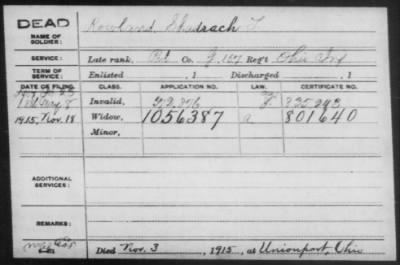 DEAD
NAME OF SOLDIER: Rowland, Shadrach T.
SERVICE: Late rank, Pvt Co. G, 157 Reg't Ohio Inf
TERM OF SERVICE: Enlisted , 1 Discharged , 1
DATE OF FILING. CLASS. APPLICATION NO. LAW. CERTIFICATE NO.
Invalid,
1915, Nov. 18 Widow, 1056387 a 801640
Minor,
ADDITIONAL SERVICES:
REMARKS:
Died Nov. 3, 1915, at Unionport, Ohio